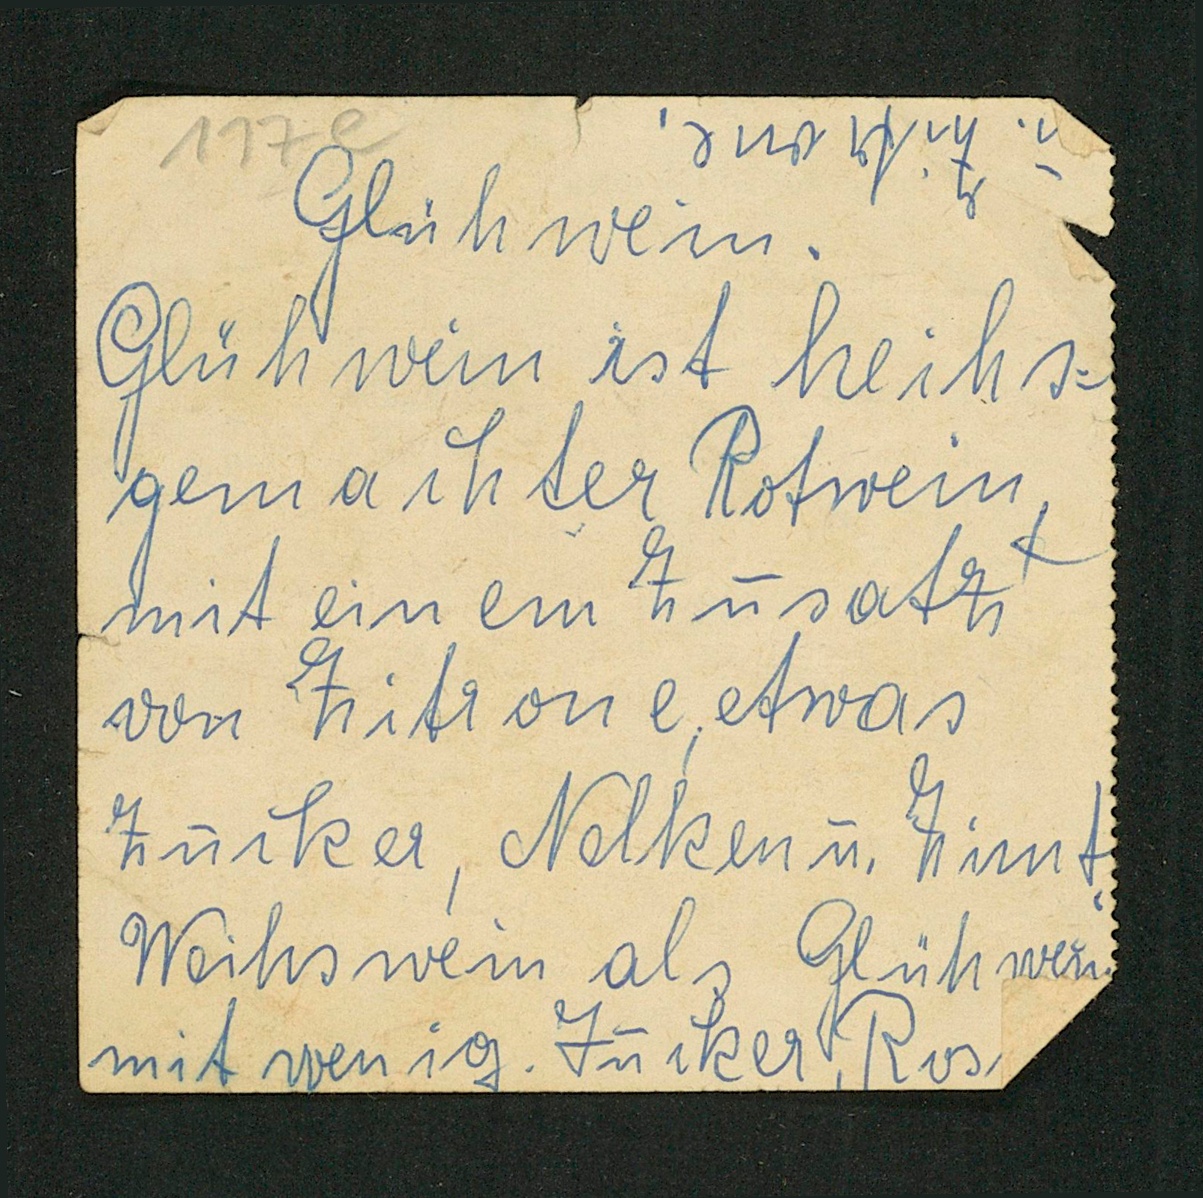 117e
Glühwein.
Glühwein ist heihs=
gemachter Rotwein,
mit einem Zusatz
von Zitrone, etwas
Zucker, Nelken u. Zimt.
Weihswein als Glühwein
mit wenig. Zucker, Ros
u. Zitrone.